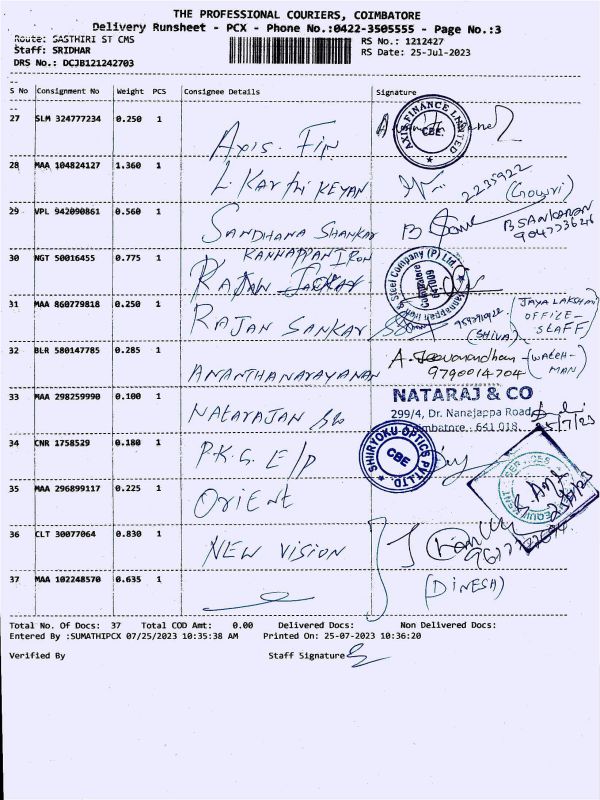 THE PROFESSIONAL COURIERS, COIMBATORE
Delivery Runsheet - PCX - Phone No.:0422-3505555 - Page No.:3
Route: SASTHIRI ST CMS RS No.: 1212427
Staff: SRIDHAR RS Date: 25-Jul-2023
DRS No.: DCJB121242703
S No Consignment No Weight PCS Consignee Details Signature
27 SLM 324777234 0.250 1 Axis. Fin
AXIS FINANCE LIMITED CBE.
28 MAA 104824127 1.360 1 L. KARTHI KEYAN 2235922 (Gowri)
29 VPL 942090861 0.560 1 SANDHANA SHANKAR B SANKARAN
30 NGT 50016455 0.775 1 KANNAPPAN IRON
Steel Company (P) Ltd. Coimbatore
31 MAA 860779818 0.250 1 RAJAN SANKAR (SHIVA) (JAYA LAKSHMI OFFICE-STAFF)
32 BLR 580147785 0.285 1 ANANTHANARAYANAN A. Jeevanandham - (WATCH-MAN)
9790014704
33 MAA 298259990 0.100 1 NATARAJAN
NATARAJ & CO
299/4, Dr. Nanajappa Road
Coimbatore - 641 018.
34 CNR 1758529 0.180 1 P.K.G. E/P
SHIRYOKU OPTICS PVT.LTD. CBE
35 MAA 296899117 0.225 1 ORIENT
36 CLT 30077064 0.830 1 NEW VISION
37 MAA 102248570 0.635 1 (DINESH)
Total No. Of Docs: 37 Total COD Amt: 0.00 Delivered Docs: Non Delivered Docs:
Entered By :SUMATHIPCX 07/25/2023 10:35:38 AM Printed On: 25-07-2023 10:36:20
Verified By Staff Signature